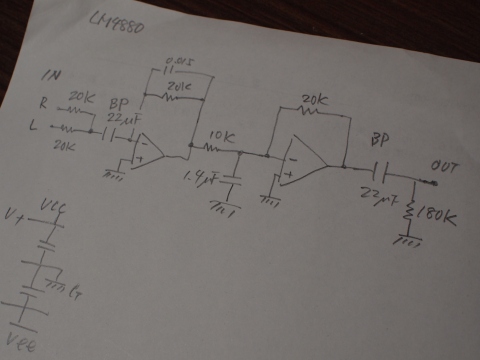 LM4880
IN
R
20K
BP
22µF
L
20K
0.015
20K
-
+
10K
1.4µF
20K
-
+
BP
22µF
OUT
180K
VCC
V+
VEE